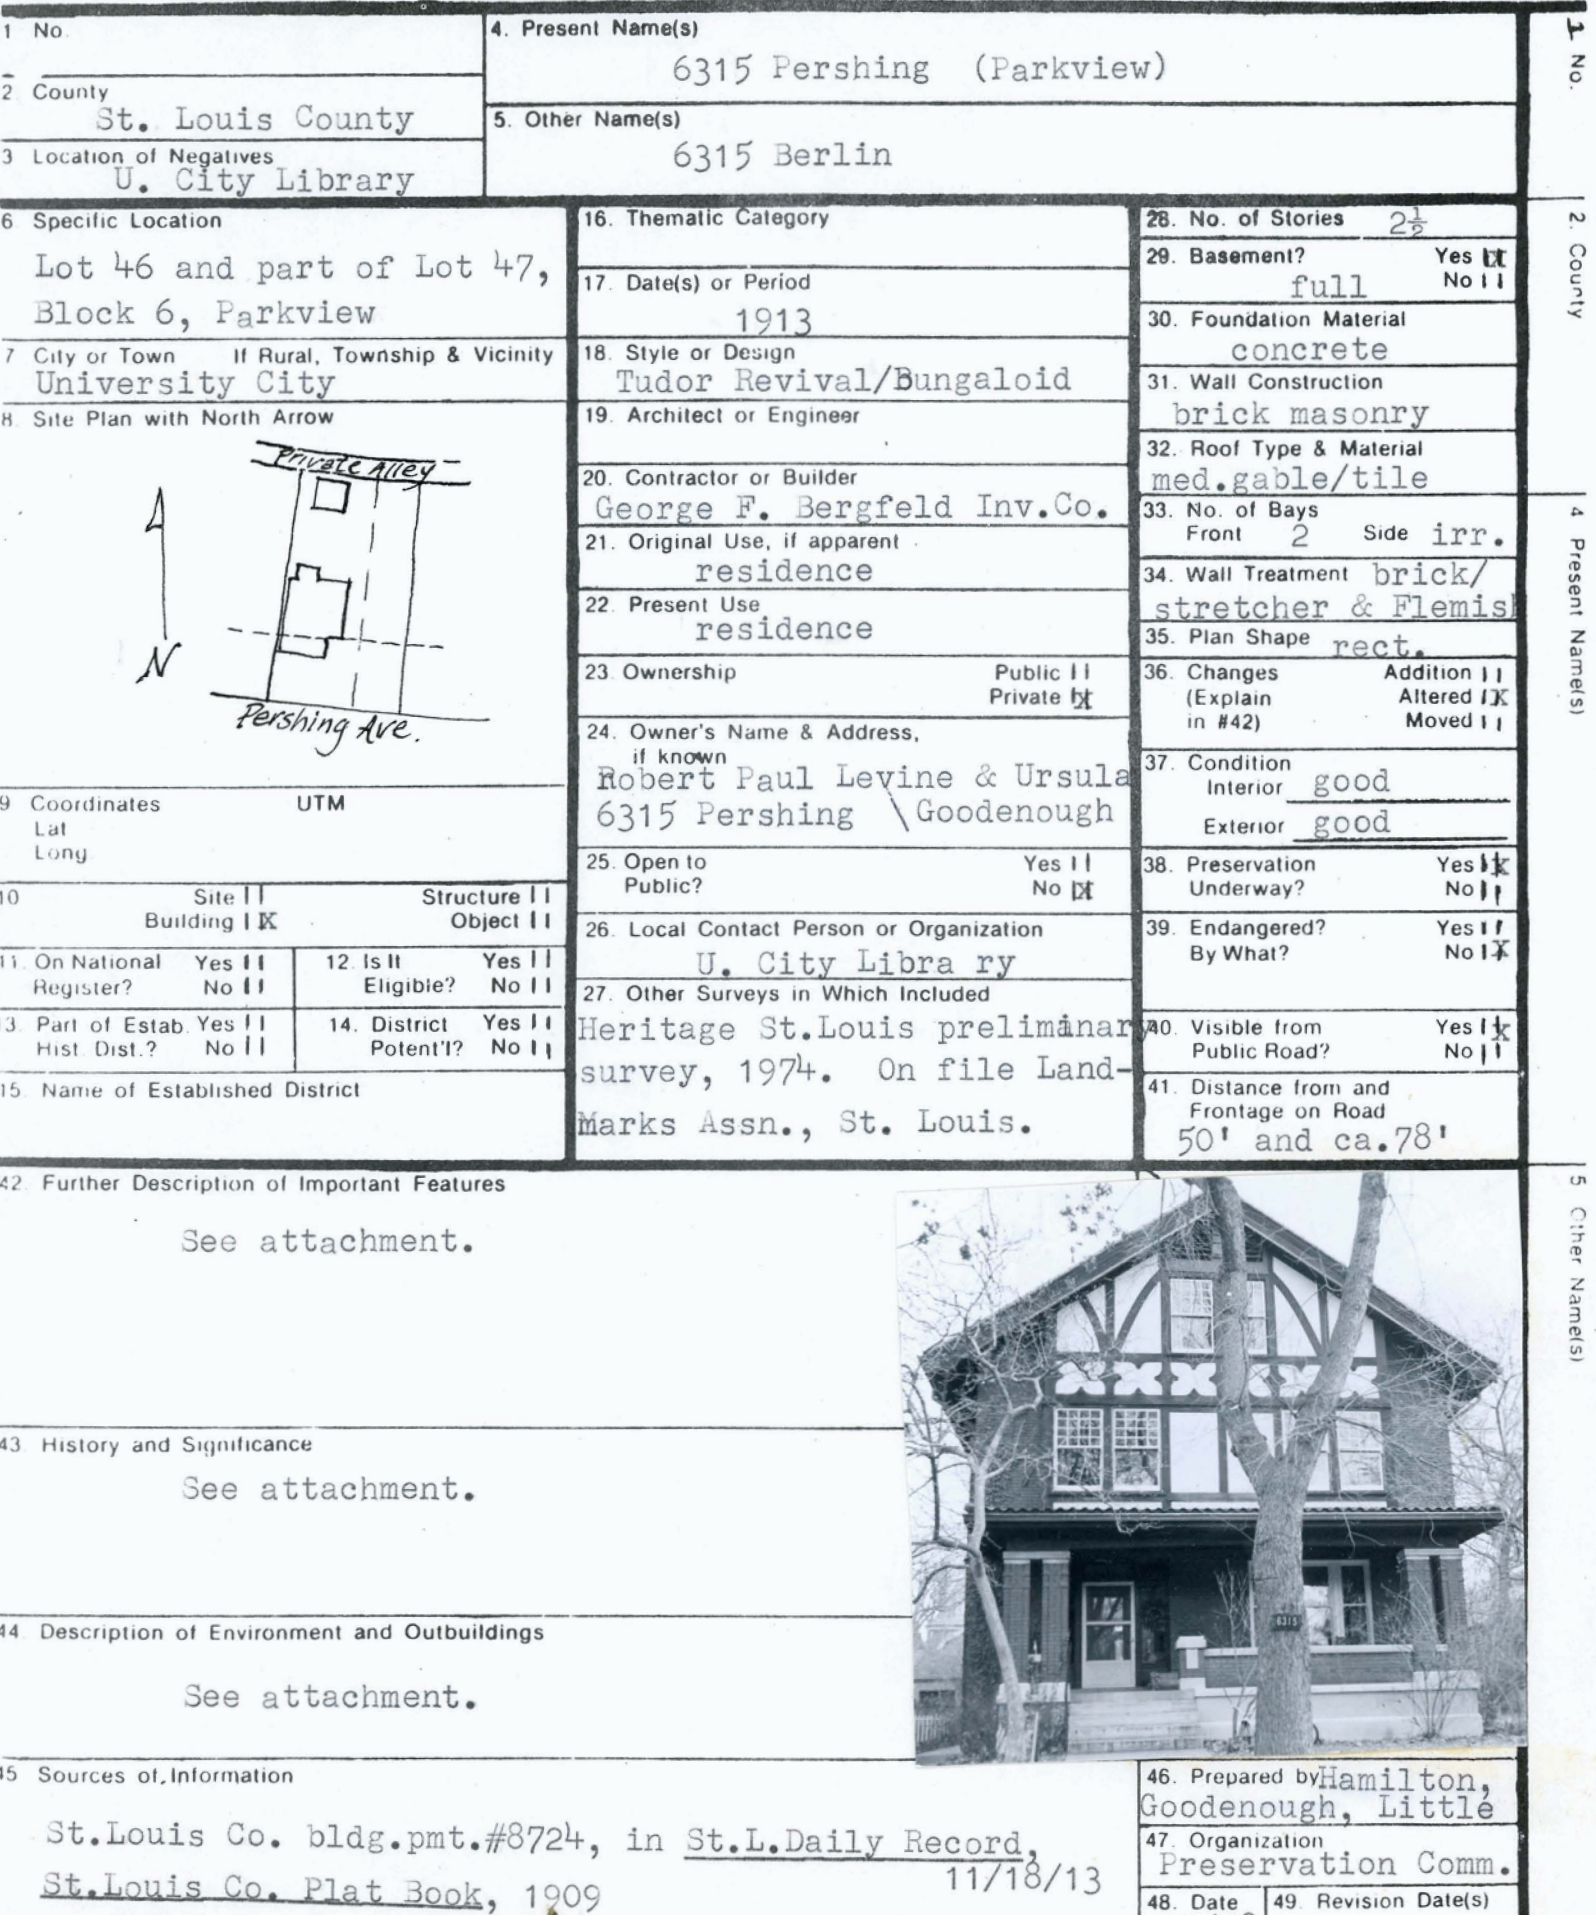 1 No.
4. Present Name(s)
6315 Pershing (Parkview)
2. County
St. Louis County
5. Other Name(s)
6315 Berlin
3 Location of Negatives
U. City Library
6 Specific Location
Lot 46 and part of Lot 47,
Block 6, Parkview
7 City or Town If Rural, Township & Vicinity
University City
8. Site Plan with North Arrow
Private Alley
N
Pershing Ave.
9 Coordinates UTM
Lat
Long
10 Site Structure
Building X Object
11. On National Yes
Register? No
12. Is It Yes
Eligible? No
13. Part of Estab. Yes
Hist. Dist.? No
14. District Yes
Potent'l? No
15. Name of Established District
16. Thematic Category
17. Date(s) or Period
1913
18. Style or Design
Tudor Revival/Bungaloid
19. Architect or Engineer
20. Contractor or Builder
George F. Bergfeld Inv.Co.
21. Original Use, if apparent
residence
22. Present Use
residence
23. Ownership Public
Private X
24. Owner's Name & Address,
if known
Robert Paul Levine & Ursula
6315 Pershing \Goodenough
25. Open to Yes
Public? No X
26. Local Contact Person or Organization
U. City Libra ry
27. Other Surveys in Which Included
Heritage St.Louis preliminary
survey, 1974. On file Land-
Marks Assn., St. Louis.
28. No. of Stories 2½
29. Basement? Yes X
full No
30. Foundation Material
concrete
31. Wall Construction
brick masonry
32. Roof Type & Material
med.gable/tile
33. No. of Bays
Front 2 Side irr.
34. Wall Treatment brick/
stretcher & Flemish
35. Plan Shape rect.
36. Changes Addition
(Explain Altered X
in #42) Moved
37. Condition
Interior good
Exterior good
38. Preservation Yes X
Underway? No
39. Endangered? Yes
By What? No X
40. Visible from Yes X
Public Road? No
41. Distance from and
Frontage on Road
50' and ca.78'
42. Further Description of Important Features
See attachment.
43 History and Significance
See attachment.
44 Description of Environment and Outbuildings
See attachment.
6315
45 Sources of Information
St.Louis Co. bldg.pmt.#8724, in St.L.Daily Record,
11/18/13
St.Louis Co. Plat Book, 1909
46. Prepared by Hamilton,
Goodenough, Little
47. Organization
Preservation Comm.
48. Date 49. Revision Date(s)
1 No.
2. County
4 Present Name(s)
5 Other Name(s)